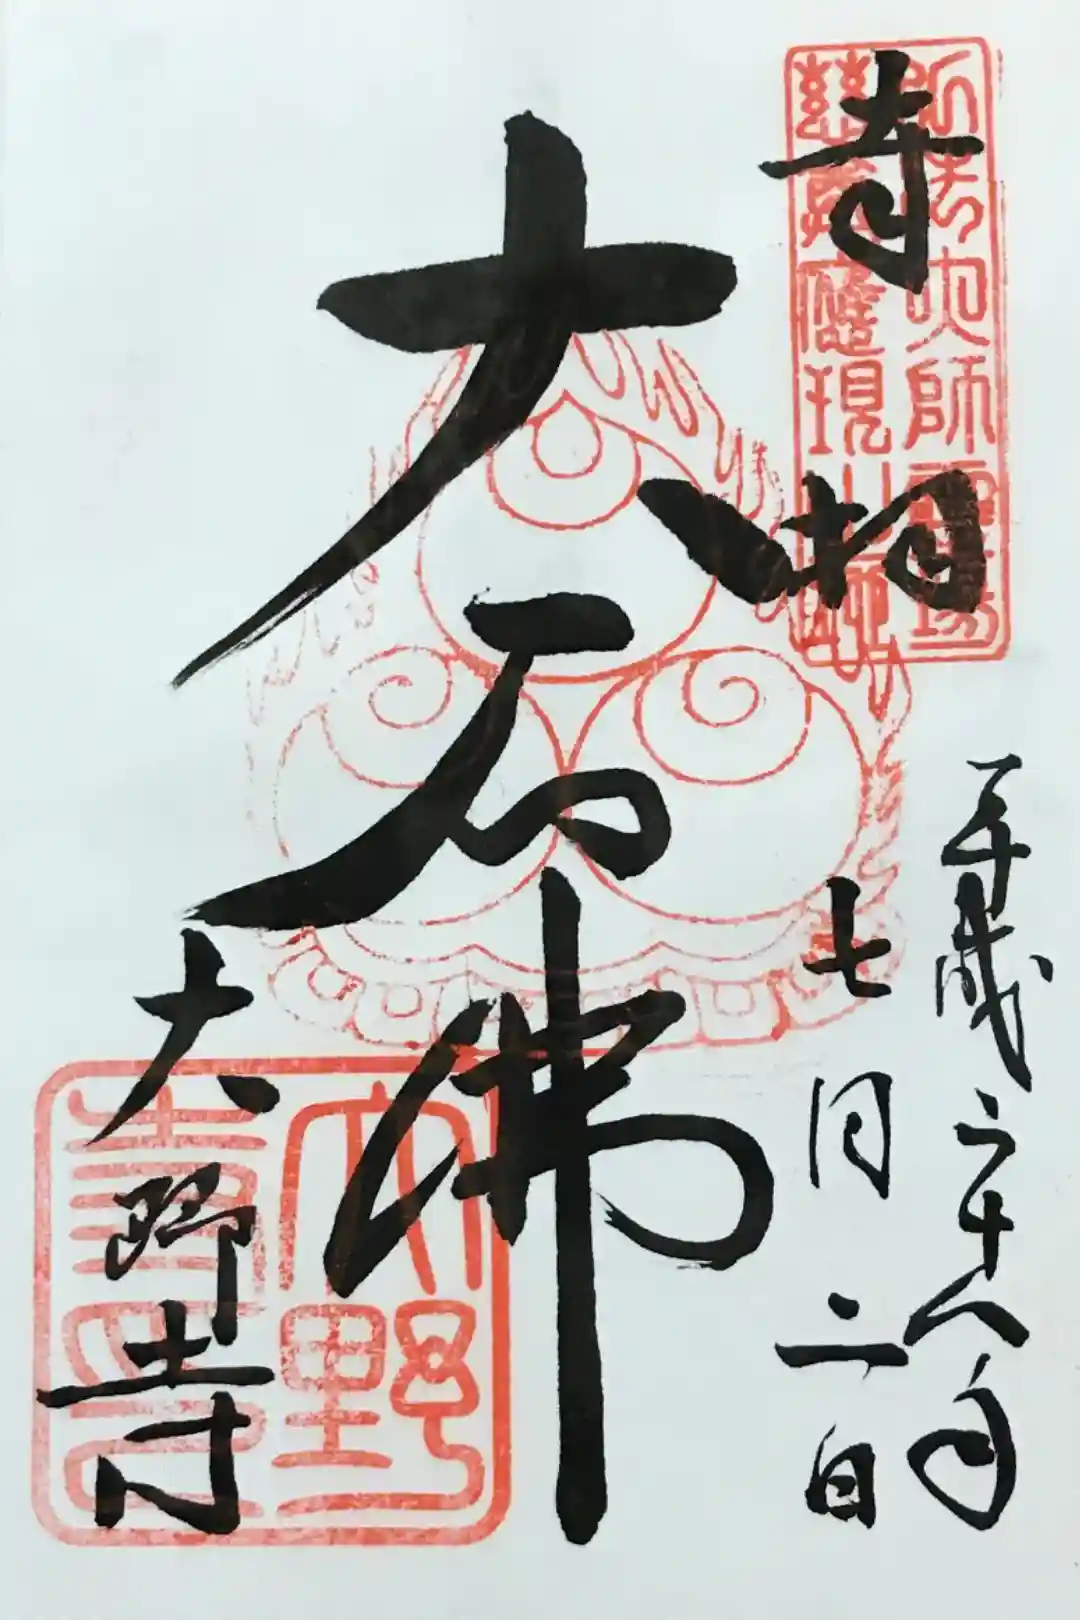 奉拝
弘法大師霊場
平成二十八年
七月二日
大石佛
大野寺
大野
寺印